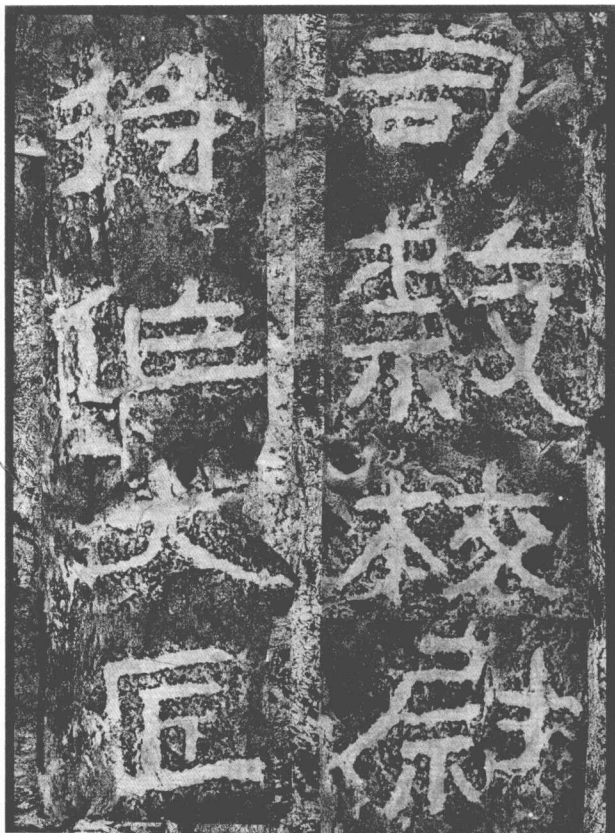 司隸校尉
將作大匠